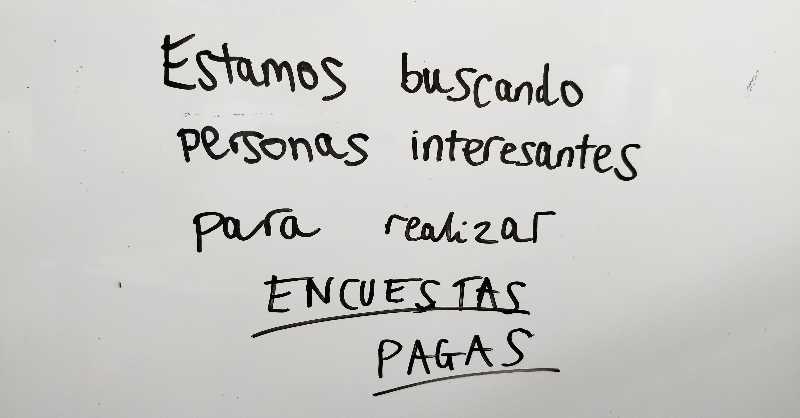 Estamos buscando
personas interesantes
para realizar
ENCUESTAS
PAGAS